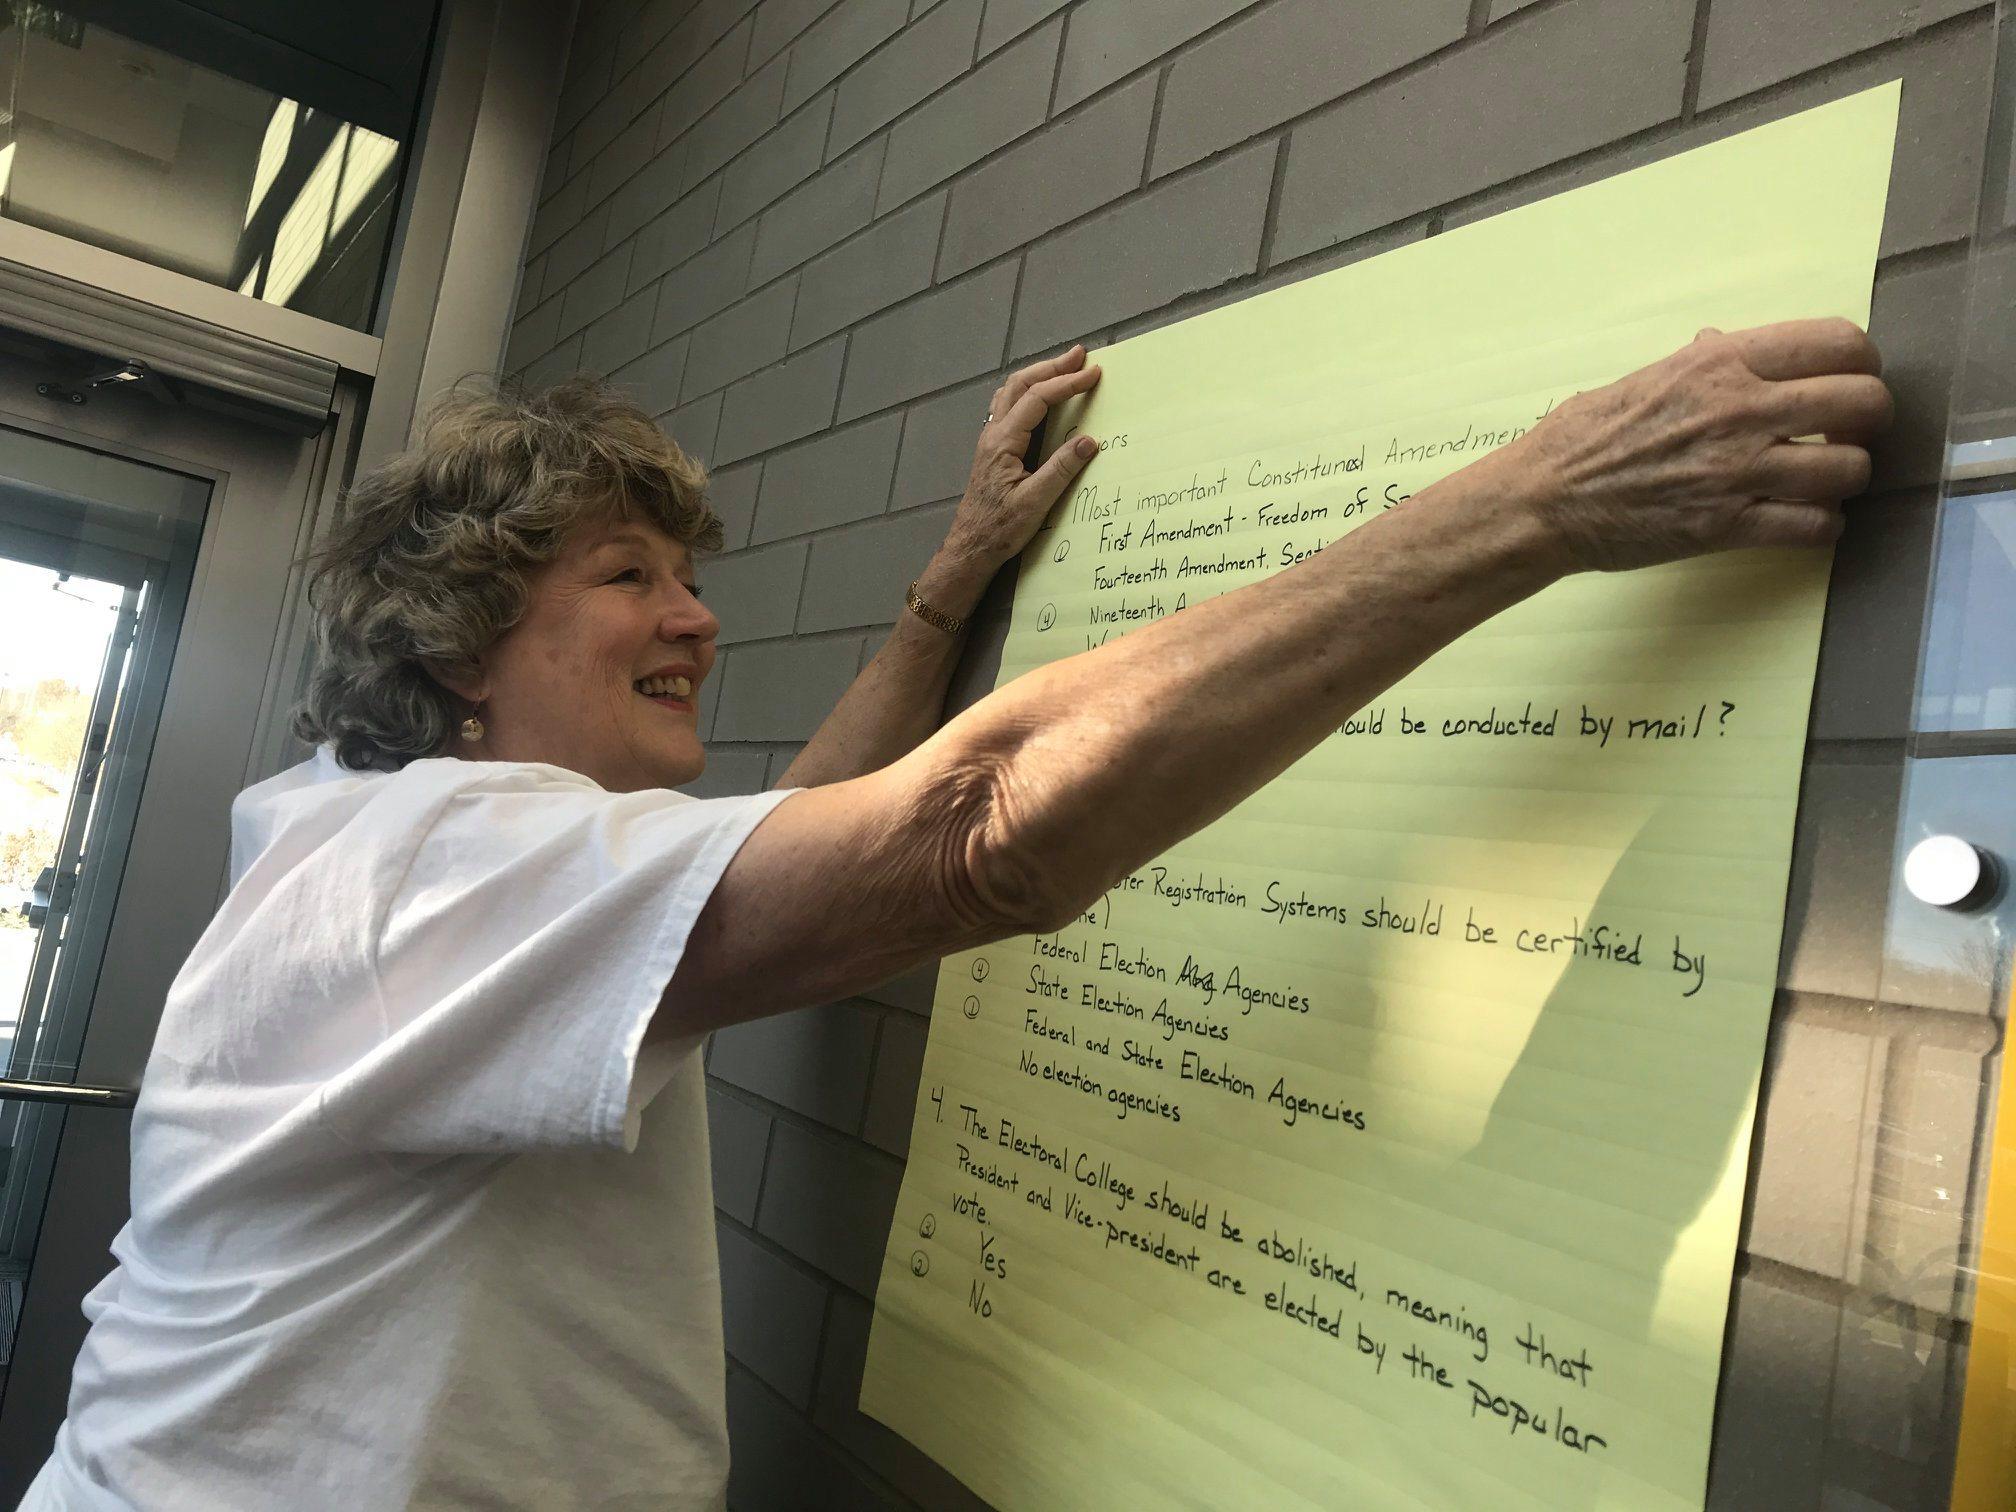 Most important Constitunal Amendment
① First Amendment - Freedom of
Fourteenth Amendment,
④ Nineteenth
be conducted by mail?
Registration Systems should be certified by
Federal Election Agencies
④ State Election Agencies
① Federal and State Election Agencies
No election agencies
4. The Electoral College should be abolished, meaning that
President and Vice-president are elected by the popular
vote.
③ Yes
② No